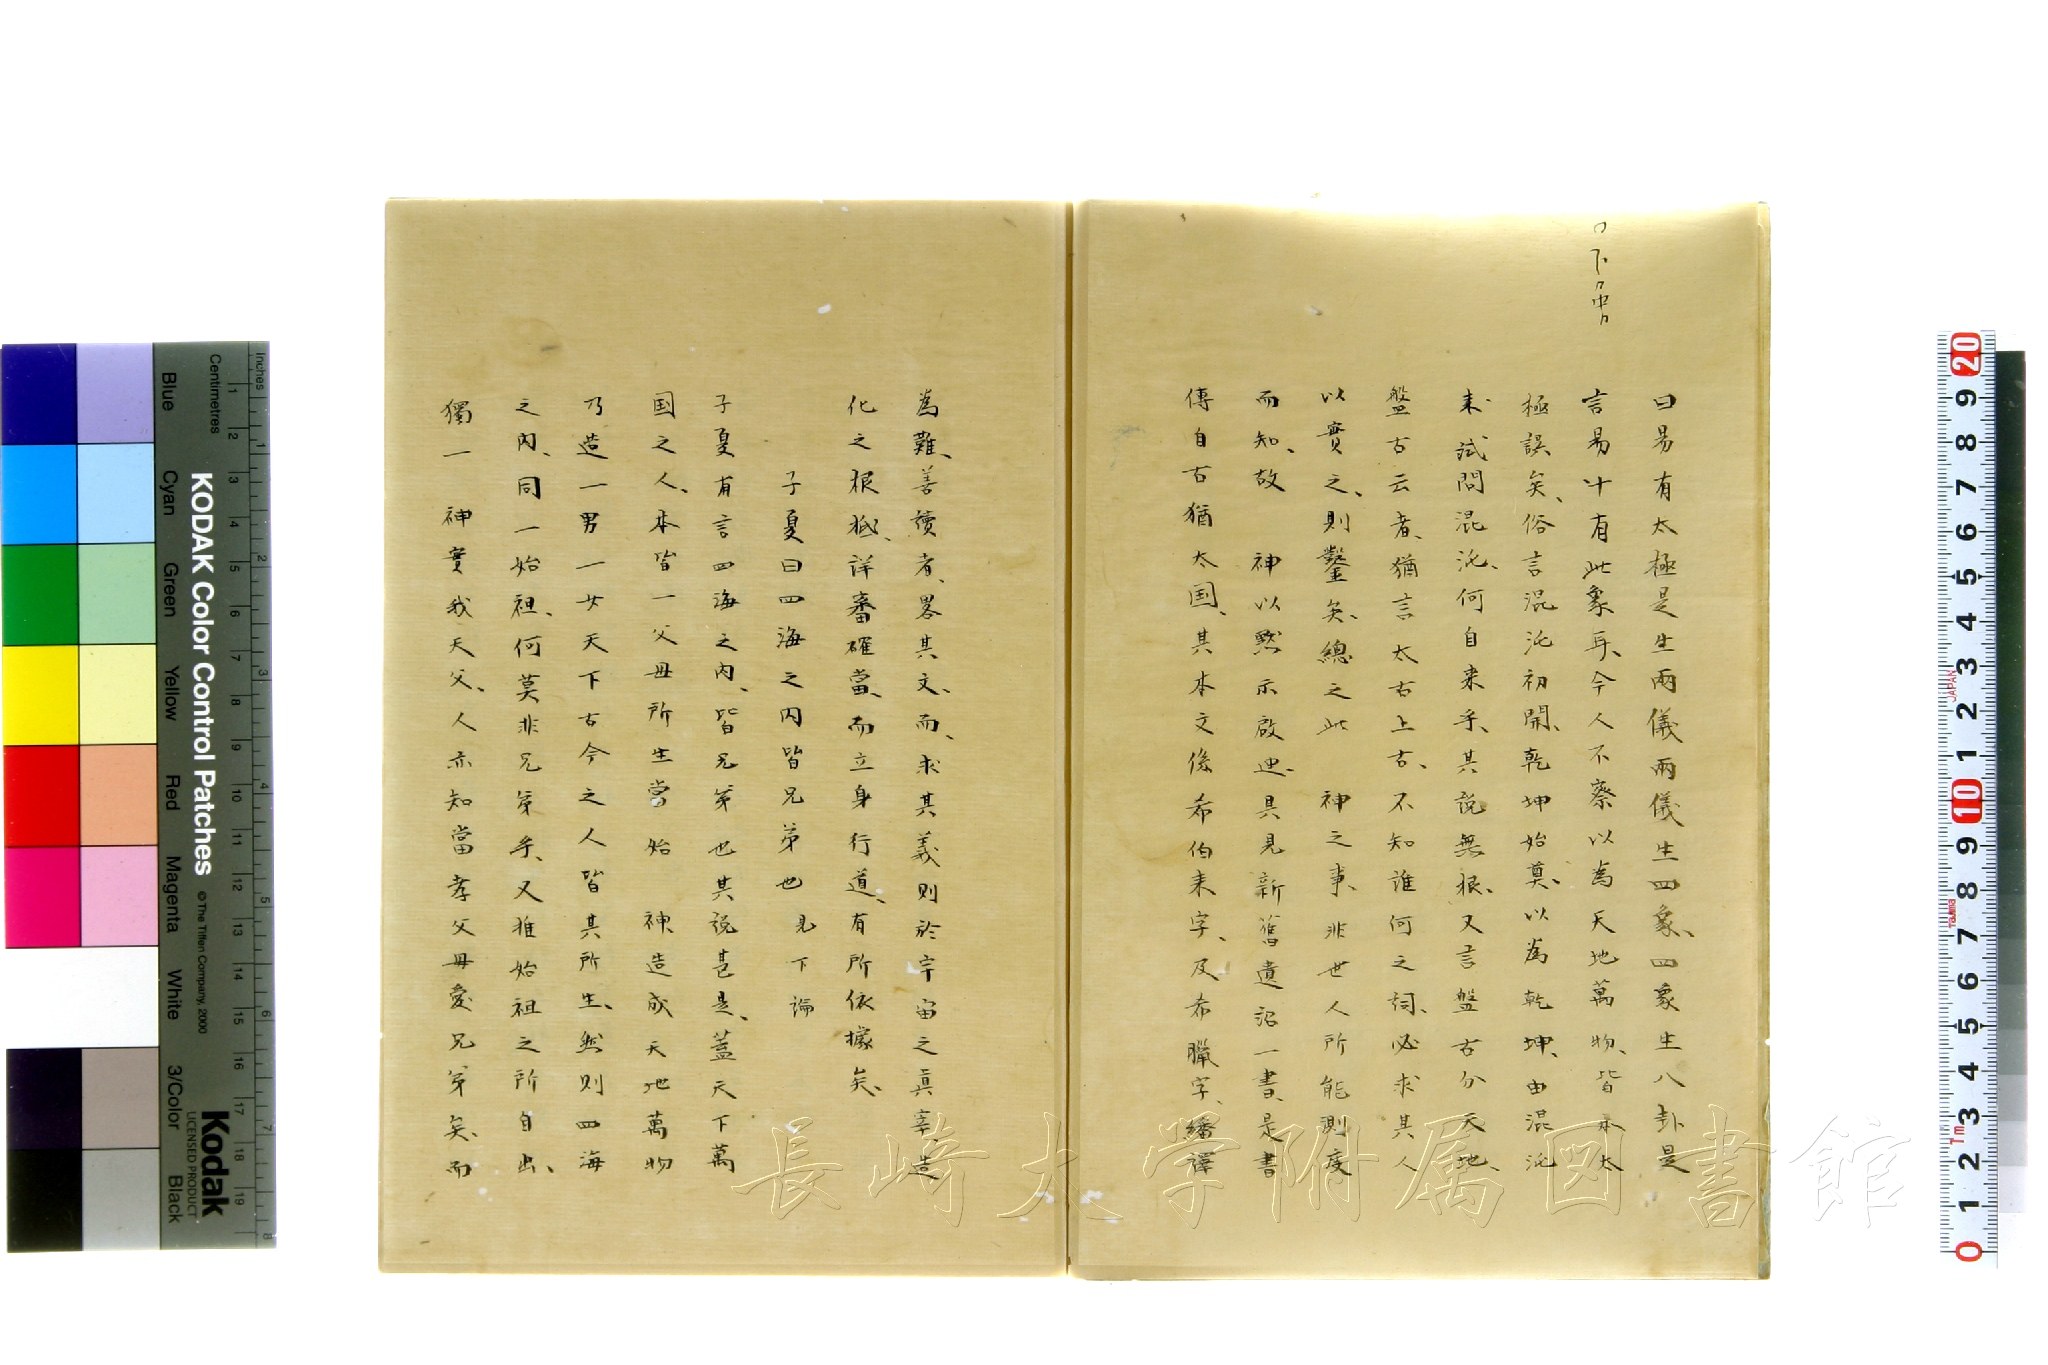 曰易有太極是生兩儀兩儀生四象、四象生八卦是
言易中有此象耳、今人不察以為天地萬物、皆本太
極誤矣、俗言混沌初開、乾坤始奠、以為乾坤、由混沌
来試問混沌、何自来乎、其説無根、又言盤古分天地、
盤古云者、猶言太古上古、不知誰何之詞、必求其人
以實之、則鑿矣、總之此　神之事、非世人所能測度
而知、故　神以黙示啟迪、具見新舊遺詔一書、是書
傳自古猶太国、其本文係希伯来字、及希臘字、繙譯
為難、善讀者、畧其文、而、求其義則於宇宙之真宰、造
化之根柢、詳審確當、而立身行道、有所依據矣、
子夏曰四海之内皆兄弟也　見下論
子夏有言四海之内、皆兄弟也其説甚是、蓋天下萬
国之人、本皆一父母所生當始　神造成天地萬物
乃造一男一女天下古今之人皆其所生、然則四海
之内、同一始祖、何莫非兄弟乎、又推始祖之所自出、
獨一　神實我天父、人亦知當孝父母愛兄弟矣、而
長崎大学附属図書館
KODAK Color Control Patches
© The Tiffen Company, 2000
Kodak
LICENSED PRODUCT
Inches
Centimetres
Blue
Cyan
Green
Yellow
Red
Magenta
White
3/Color
Black